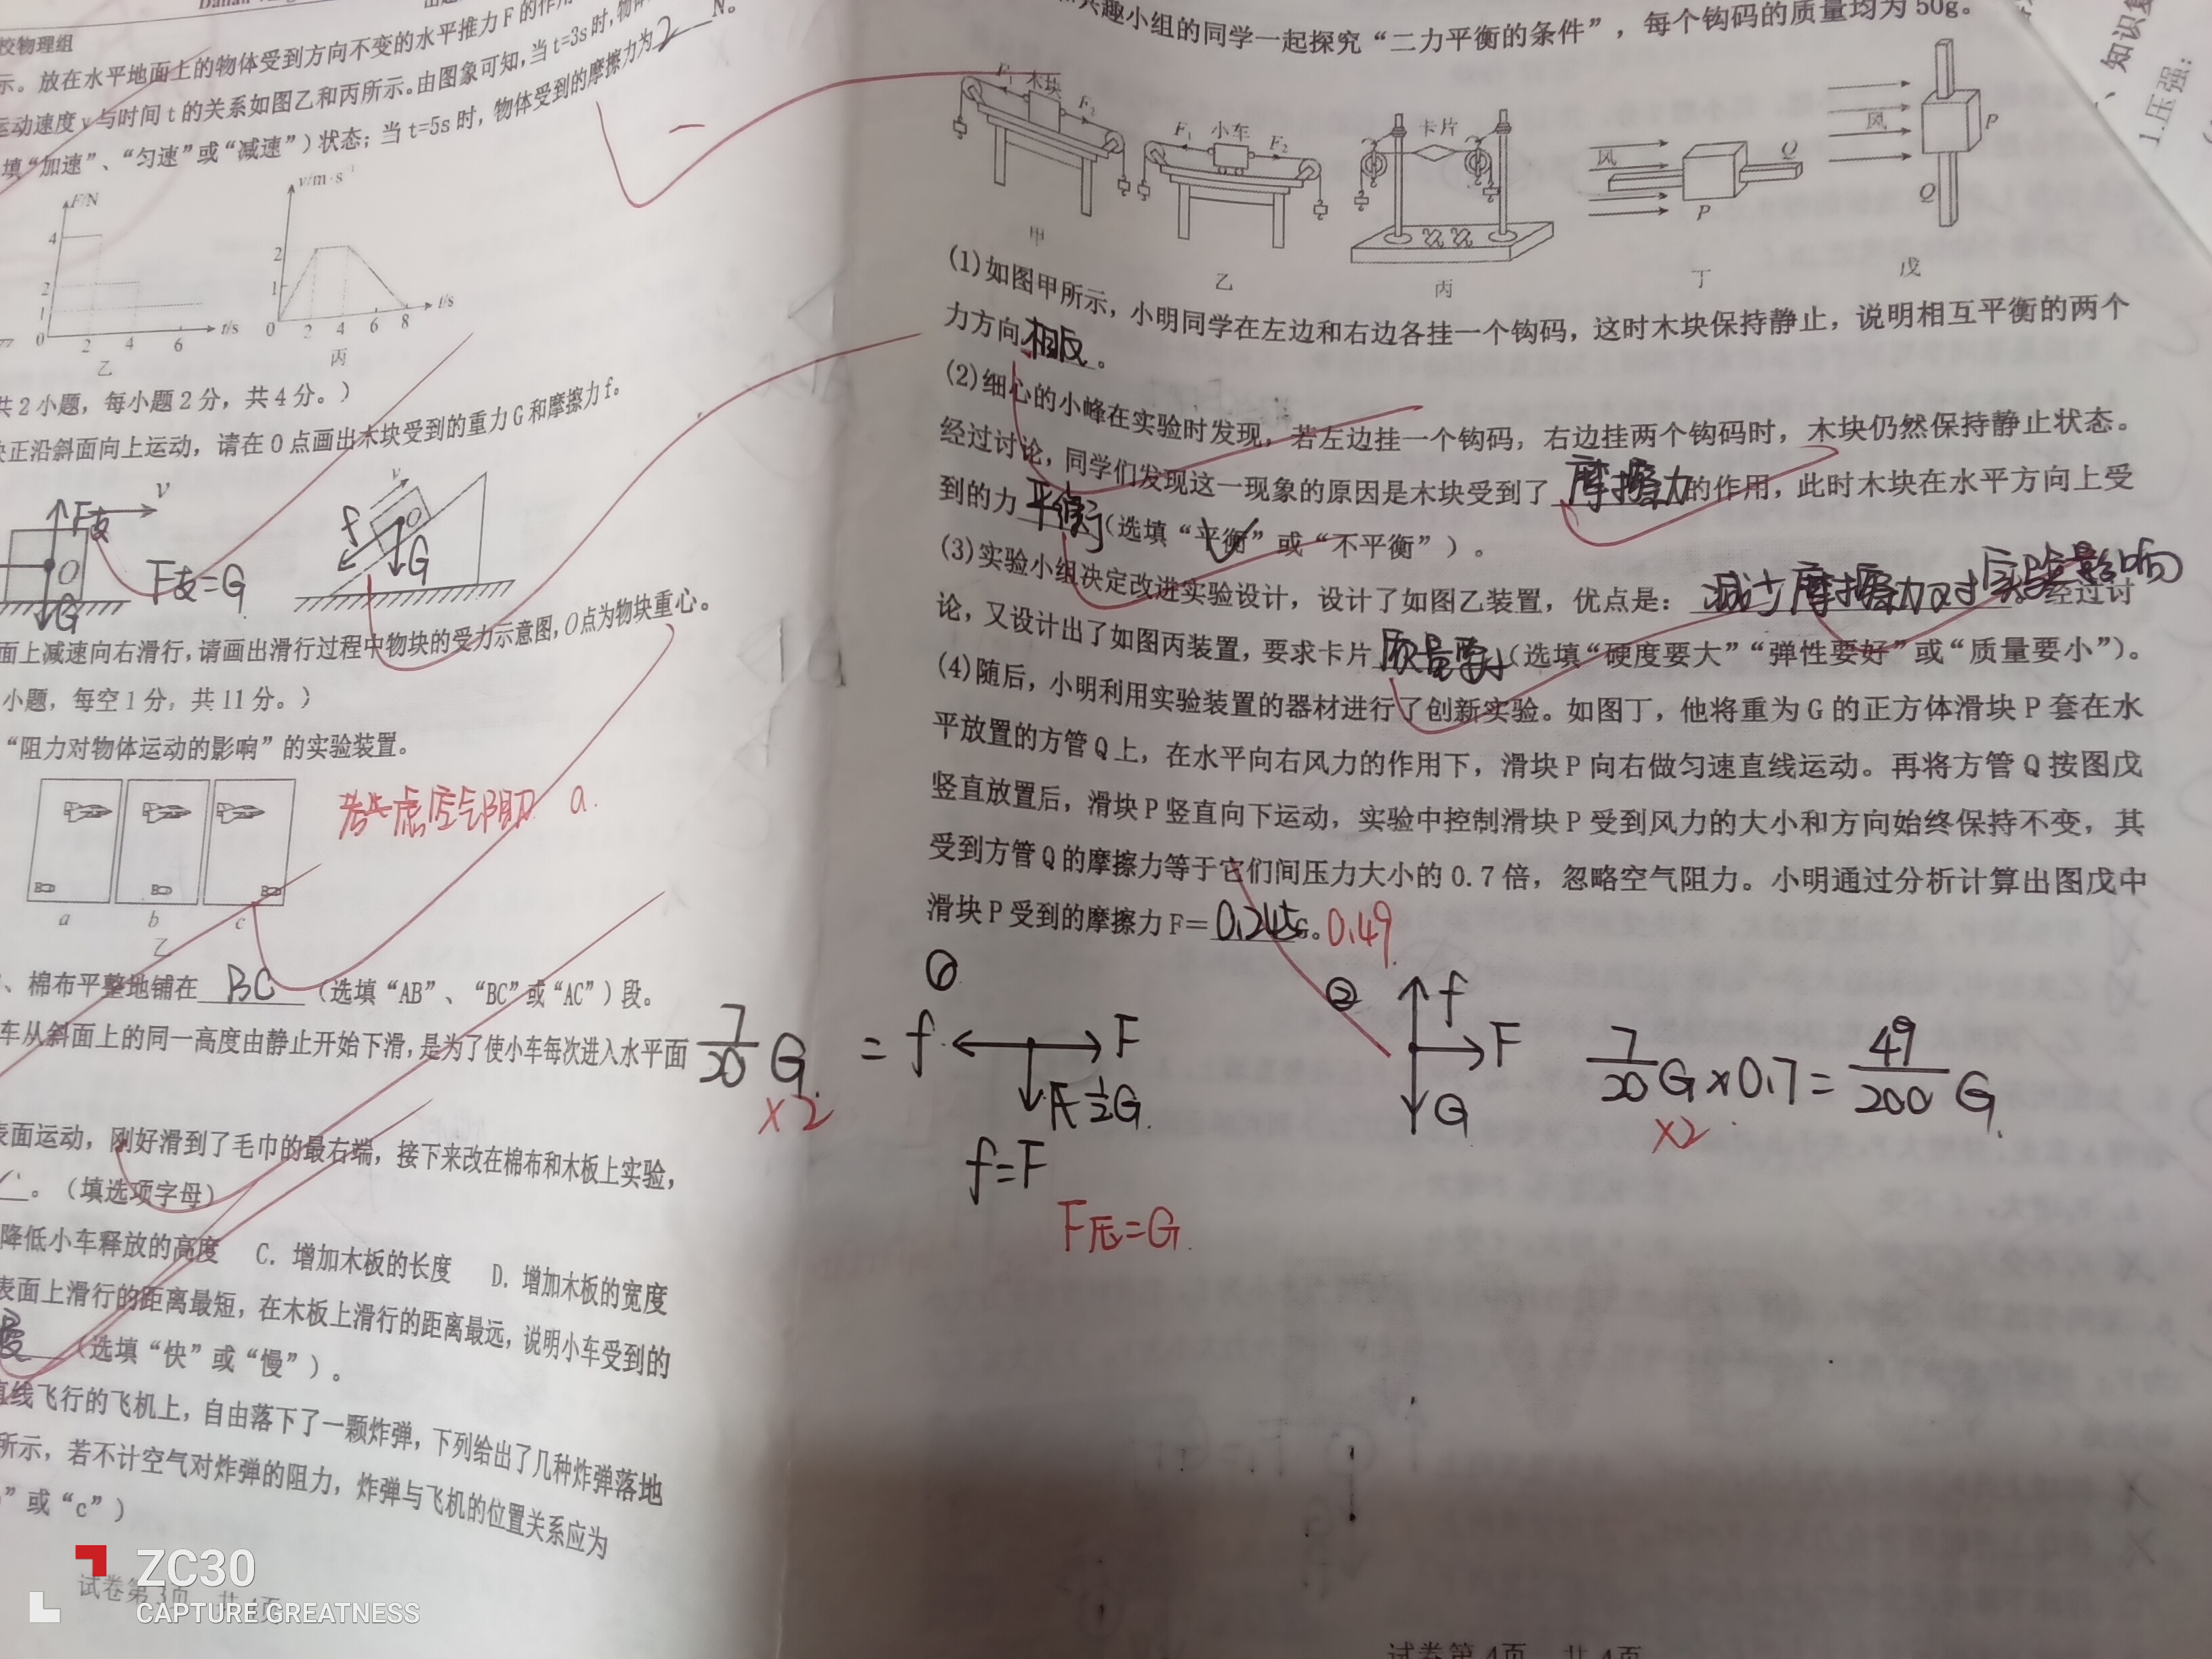 校物理组
示。放在水平地面上的物体受到方向不变的水平推力F的作用
运动速度v与时间t的关系如图乙和丙所示。由图象可知，当t=3s时，物体
填“加速”、“匀速”或“减速”）状态；当t=5s时，物体受到的摩擦力为 2 N。
F/N
4
2
1
0
2
4
6
t/s
乙
v/m·s⁻¹
2
1
0
2
4
6
8
t/s
丙
共2小题，每小题2分，共4分。）
块正沿斜面向上运动，请在O点画出木块受到的重力G和摩擦力f。
F支
v
O
G
F支=G
v
f
O
G
面上减速向右滑行，请画出滑行过程中物块的受力示意图，O点为物块重心。
小题，每空1分，共11分。）
“阻力对物体运动的影响”的实验装置。
a
b
c
乙
若考虑空气阻力 a.
、棉布平整地铺在 BC （选填“AB”、“BC”或“AC”）段。
车从斜面上的同一高度由静止开始下滑，是为了使小车每次进入水平面
表面运动，刚好滑到了毛巾的最右端，接下来改在棉布和木板上实验，
。（填选项字母）
降低小车释放的高度 C. 增加木板的长度 D. 增加木板的宽度
表面上滑行的距离最短，在木板上滑行的距离最远，说明小车受到的
慢 （选填“快”或“慢”）。
直线飞行的飞机上，自由落下了一颗炸弹，下列给出了几种炸弹落地
所示，若不计空气对炸弹的阻力，炸弹与飞机的位置关系应为
”或“c”）
试卷第3页 共4页
ZC30
CAPTURE GREATNESS
兴趣小组的同学一起探究“二力平衡的条件”，每个钩码的质量均为50g。
F₁ 木块 F₂
甲
F₁ 小车 F₂
乙
卡片
丙
风
P
Q
丁
风
P
Q
戊
(1)如图甲所示，小明同学在左边和右边各挂一个钩码，这时木块保持静止，说明相互平衡的两个
力方向 相反 。
(2)细心的小峰在实验时发现，若左边挂一个钩码，右边挂两个钩码时，木块仍然保持静止状态。
经过讨论，同学们发现这一现象的原因是木块受到了 摩擦力 的作用，此时木块在水平方向上受
到的力 平衡 （选填“平衡”或“不平衡”）。
(3)实验小组决定改进实验设计，设计了如图乙装置，优点是： 减少摩擦力对实验影响 。经过讨
论，又设计出了如图丙装置，要求卡片 质量要小 （选填“硬度要大”“弹性要好”或“质量要小”）。
(4)随后，小明利用实验装置的器材进行了创新实验。如图丁，他将重为G的正方体滑块P套在水
平放置的方管Q上，在水平向右风力的作用下，滑块P向右做匀速直线运动。再将方管Q按图戊
竖直放置后，滑块P竖直向下运动，实验中控制滑块P受到风力的大小和方向始终保持不变，其
受到方管Q的摩擦力等于它们间压力大小的0.7倍，忽略空气阻力。小明通过分析计算出图戊中
滑块P受到的摩擦力F= 0.245 G。 0.49
①
7/20 G = f
F
½G
×2
f=F
F压=G
②
f
F
G
7/20 G×0.7=49/200 G.
×2
试卷第4页 共4页
、知识复
1.压强：